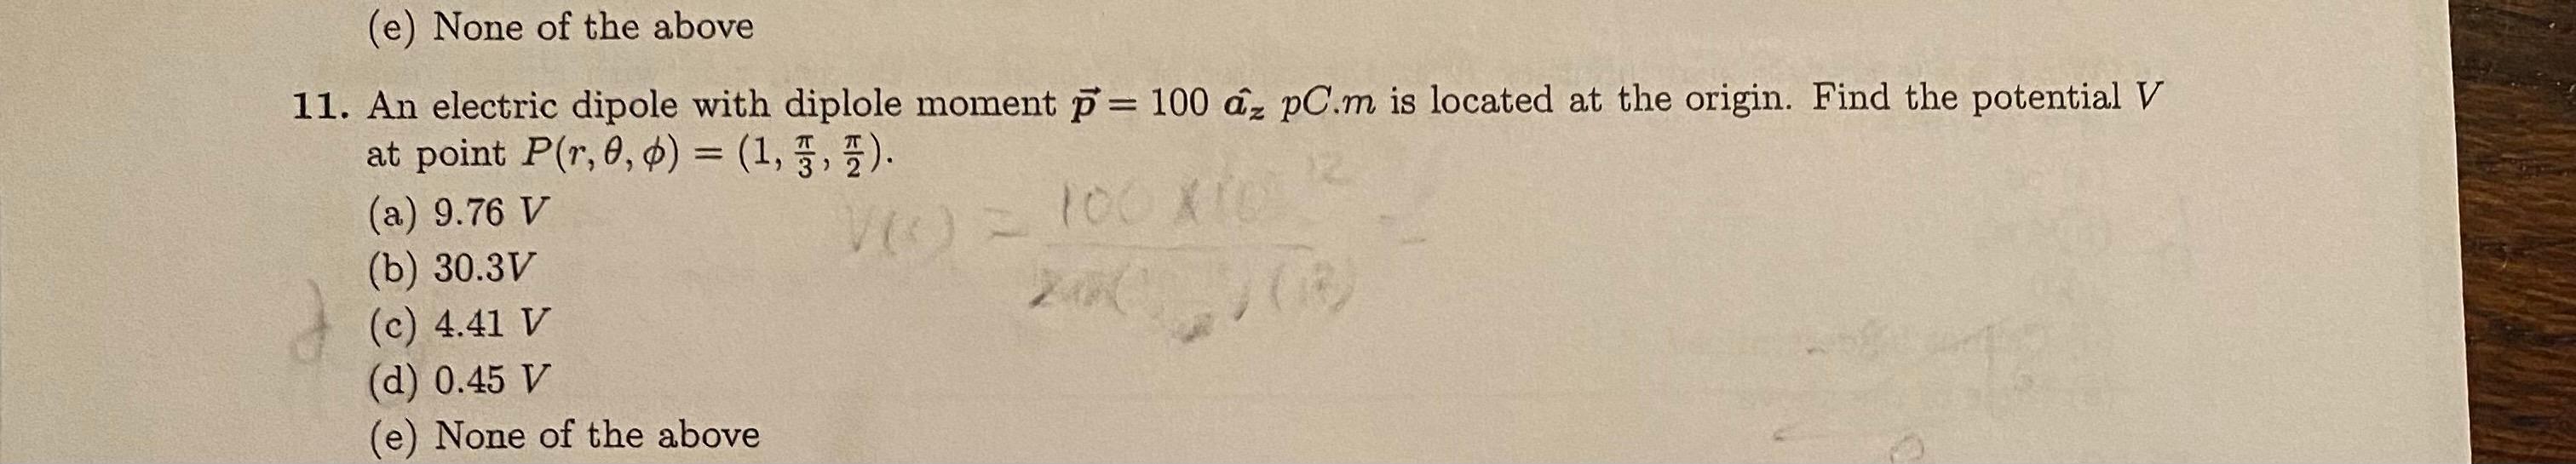 (e) None of the above
11. An electric dipole with diplole moment p⃗ = 100 â_z pC.m is located at the origin. Find the potential V
at point P(r, θ, ϕ) = (1, π/3, π/2).
(a) 9.76 V
(b) 30.3V
(c) 4.41 V
(d) 0.45 V
(e) None of the above